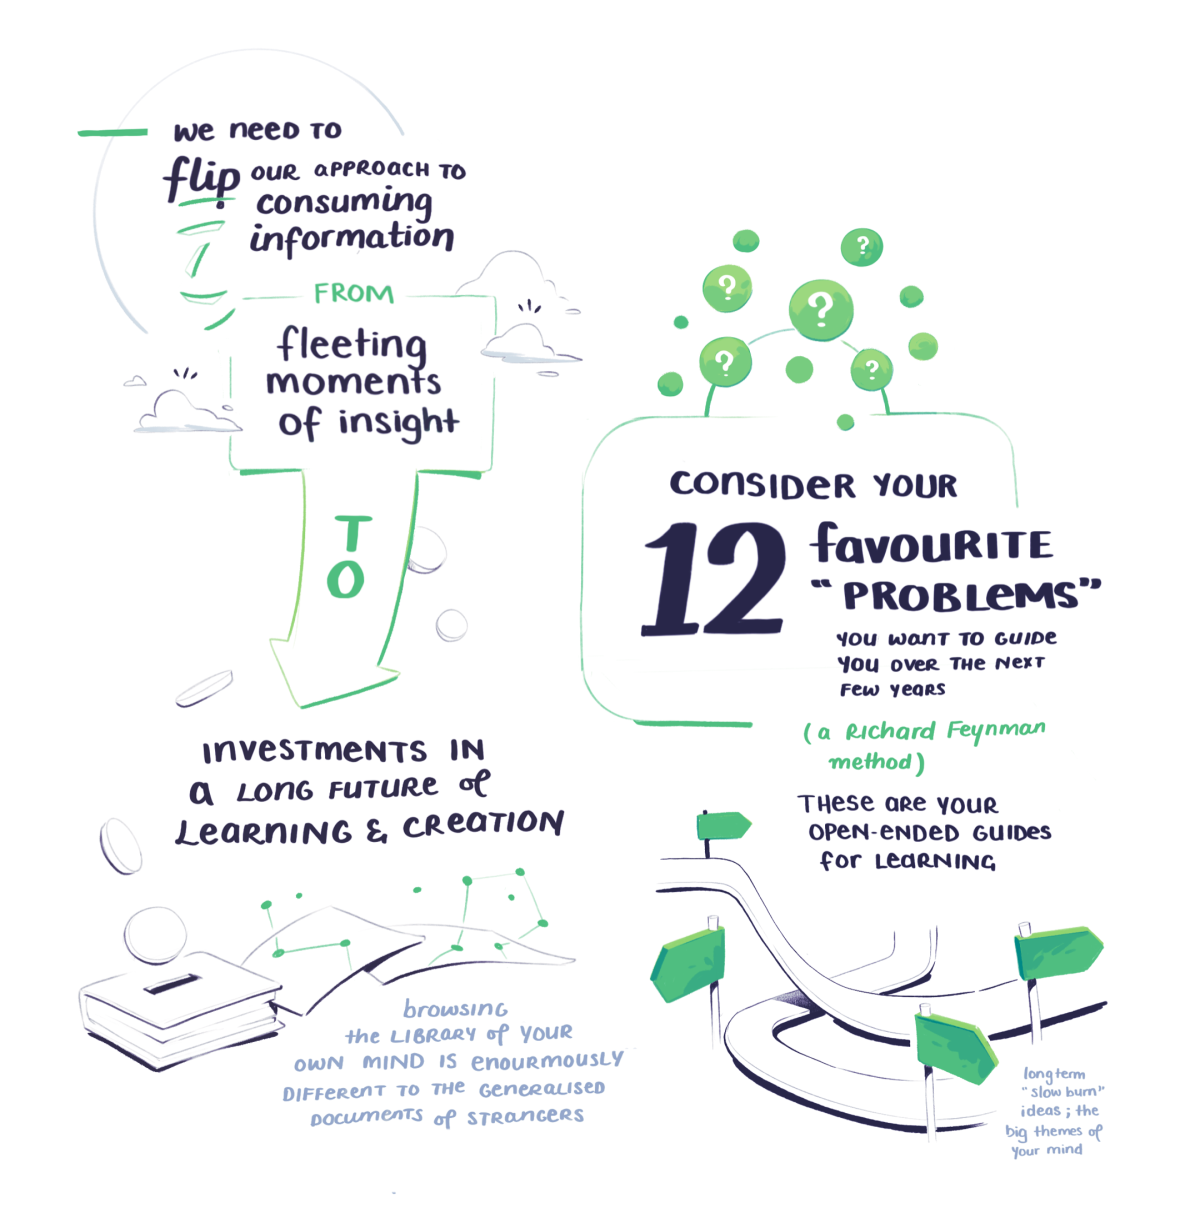 We need to
flip our approach to
consuming
information
FROM
fleeting
moments
of insight
TO
investments in
a long future of
learning & creation
browsing
the library of your
own mind is enourmously
different to the generalised
documents of strangers
?
?
?
?
?
Consider your
12 favourite
"problems"
you want to guide
you over the next
few years
(a Richard Feynman
method)
These are your
open-ended guides
for learning
long term
"slow burn"
ideas; the
big themes of
your mind